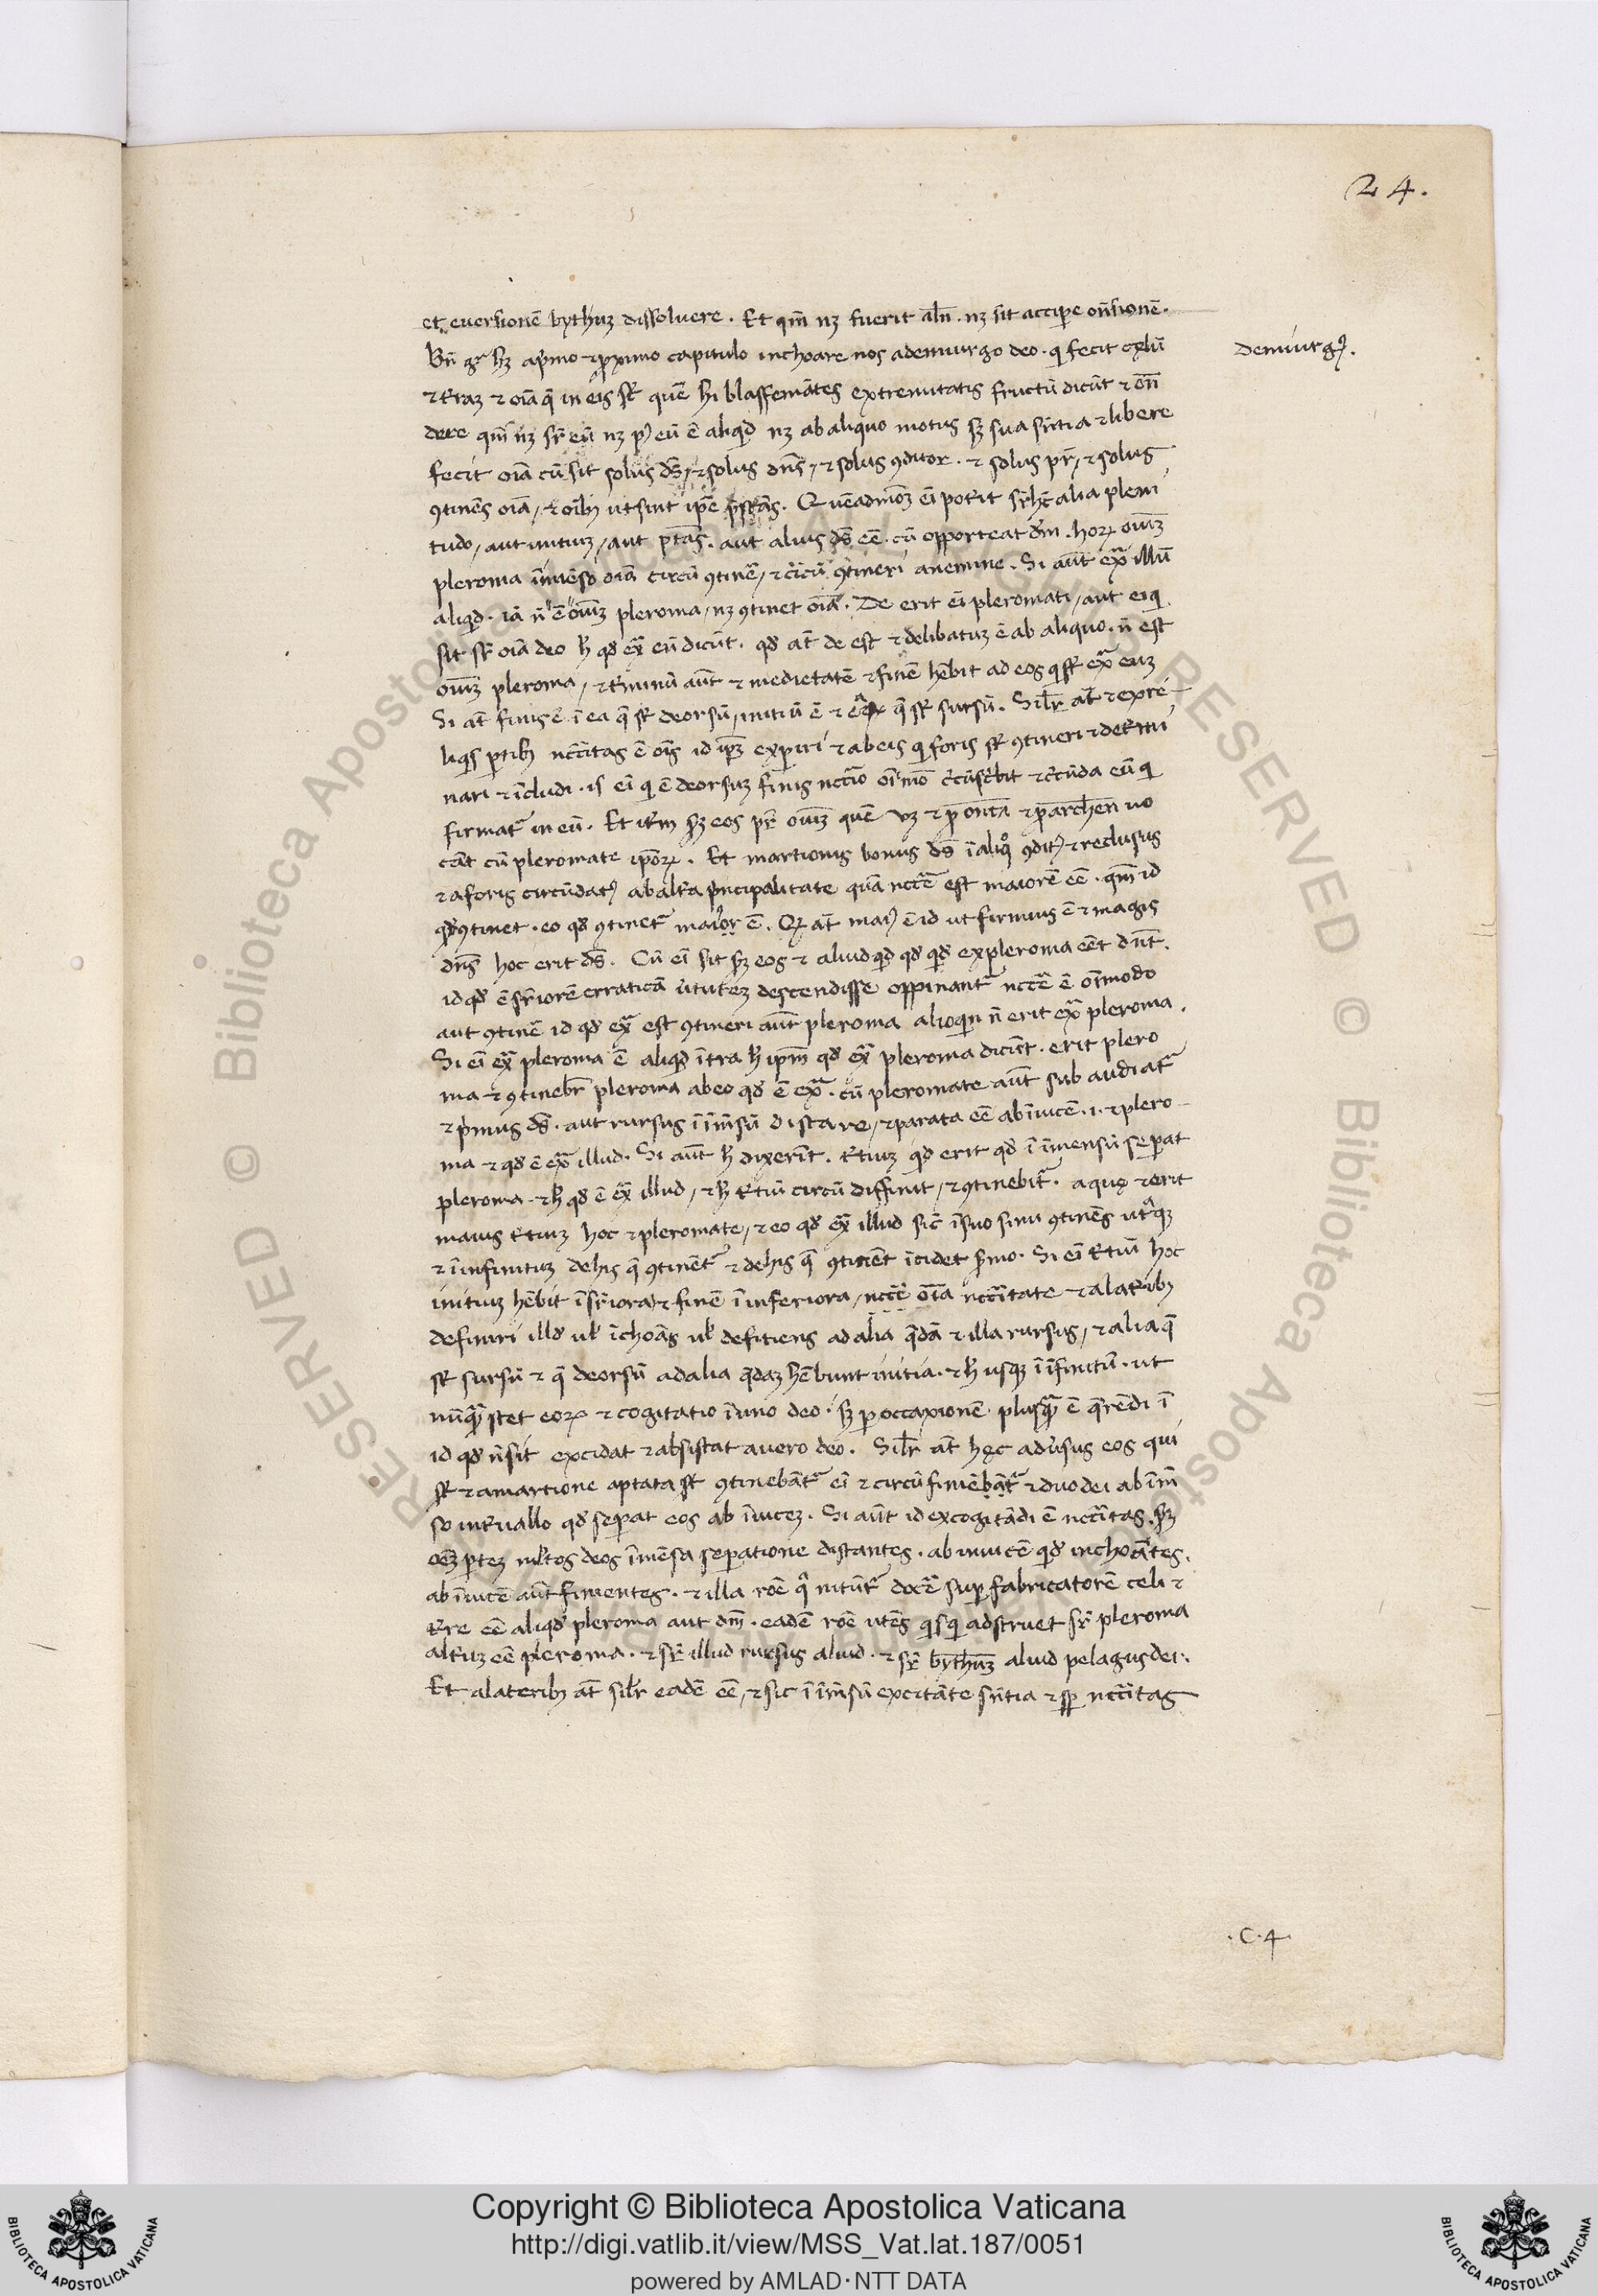 24.
et euersionē bythuȝ dissoluere. Et qm̄ nȝ fuerit alr̄. nȝ sit accipe on̄sionē.
Bn̄ gͦ hȝ apͥmo ⁊ pximo capitulo inchoare nos ademiurgo deo. qͥ fecit celū
demiurgꝰ.
⁊ t̄raȝ ⁊ oīa q̄ in eis st̄ quē hi blasfemātes extremitatis fructū dicūt ⁊ on̄
dere qm̄ nȝ sr̄ eū nȝ pꝰ eū ē aliqͥd nȝ ab aliquo motus sȝ sua sn̄tia ⁊ libere
fecit oīa cū sit solus ds̄, ⁊ solus dn̄s, ⁊ solus ꝯditor. ⁊ solus pr̄, ⁊ solus
ꝯtinēs oīa, ⁊ oībꝫ ut sint ip̄e p̄stās. Quēadmoȝ eī potit̄ sr̄ hc̄ alia pleni
tudo, aut initiuȝ, aut ptās. aut alius ds̄ eē. cū opporteat dm̄. hoꝝ oīuȝ
pleroma īmēso oīa circū ꝯtinē, ⁊ c̄icū ꝯtineri anemine. Si aūt ext̄ illū
aliqͥd. iā n̄ ē oīuȝ pleroma, nȝ ꝯtinet oīa. De erit eī pleromati, aut ei qͥ
sit sr̄ oīa deo h̄ qd̄ ext̄ eū dicūt. qd̄ at̄ de est ⁊ delibatuȝ ē ab aliquo. n̄ est
oīuȝ pleroma, ⁊ t̄minū aūt ⁊ medietatē ⁊ finē hēbit ad eos qͥ st̄ ext̄ euȝ
Si at̄ finis ē ī ea q̄ st̄ deorsū, initiū ē ⁊ q̄ st̄ sursū. Silr̄ at̄ ⁊ ex re
liqͥs ptibꝫ nccītas ē oīs id ip̄ȝ experiri ⁊ ab eis qͥ foris st̄ ꝯtineri ⁊ det̄mi
nari ⁊ īcludi. is eī qͥ ē deorsuȝ finis nccīo oīmō c̄cūsc̄bit ⁊ c̄cūda eū qͥ
firmat᷑ in eū. Et it̄m sȝ eos pr̄ oīuȝ quē vȝ ⁊ p̄onta ⁊ p̄archen uo
cāt cū pleromate ip̄oꝝ. Et martionis bonus ds̄ ī aliqͦ ꝯditꝰ ⁊ reclusus
⁊ aforis circūdatꝰ ab alt̄a pncipalitate quā nccē est maiorē eē. qm̄ id
qd̄ ꝯtinet. eo qd̄ ꝯtinet᷑ maior ē. Qͩ at̄ maiꝰ ē id ut firmius ē ⁊ magis
dn̄s hoc erit ds̄. Cū eī sit sȝ eos ⁊ aliud qͥd qd̄ qd̄ ex pleroma eēt dn̄t.
id qd̄ ē sr̄iorē erraticā v̄tutēȝ descendisse oppinant᷑ nccē ē oīmodo
aut ꝯtinē id qd̄ ext̄ est ꝯtineri aūt pleroma alioqͥn n̄ erit ext̄ pleroma.
Si eī ext̄ pleroma ē aliqͥd ītra h̄ ipm̄ qd̄ ext̄ pleroma dicūt. erit plero
ma ⁊ ꝯtinebr̄ pleroma abeo qd̄ ē ext̄. cū pleromate aūt sub audiat᷑
⁊ pͥmus ds̄. aut rursus ī īm̄sū distare, ⁊ parata eē ab īuicē .i. ⁊ plero
ma ⁊ qd̄ ē ext̄ illud. Si aūt h̄ dixerīt. t̄tiuȝ qͥd erit qd̄ ī īmensū sepat
pleroma. ⁊ h̄ qd̄ ē ext̄ illud, ⁊ h̄ t̄tiū circū diffinit, ⁊ ꝯtinebit᷑. aquę ⁊ erit
maius t̄tiuȝ hoc ⁊ pleromate, ⁊ eo qd̄ ext̄ illud sic̄ īsuo sinu ꝯtinēs utͣqȝ
⁊ īinfinituȝ dehis q̄ ꝯtinēt᷑ ⁊ dehis q̄ ꝯtinēt īcidet sermo. Si eī t̄tiū hoc
initiuȝ hēbit īsr̄iora ⁊ finē ī inferiora, nccē oīa nccītate ⁊ alat̄ibꝫ
definiri illd̄ ul̄ īchoās ul̄ defitiens ad alia q̄dā ⁊ illa rursus, ⁊ alia q̄
st̄ sursū ⁊ q̄ deorsū adalia q̄daȝ hēbunt initia. ⁊ h̄ usqȝ ī īfinitū. ut
nūqͣ stet eoꝝ ⁊ cogitatio ī uno deo. sȝ p occaxionē. plusqͣ ē q̄rēdi ī
id qd̄ n̄ sit excidat ⁊ absistat auero deo. Silr̄ at̄ hęc adūsus eos qui
st̄ ⁊ amartione aptata st̄ ꝯtinebāt᷑ eī ⁊ circū finiēbāt᷑ ⁊ duo dei ab īm̄
so int̄uallo qd̄ sepat eos ab īuiceȝ. Si aūt id excogitādi ē nccītas. sȝ
oēȝ pteȝ ml̄tos deos īmēsa sepatione distantes. ab inuicē qͥd inchoātes.
ab īuicē aūt finientes. ⁊ illa rōē qͣ nitūt᷑ docē sup fabricatorē celi ⁊
t̄re eē aliqͥd pleroma aut dm̄. eadē rōē utēs qͥsqͥ adstruet sr̄ pleroma
alt̄uȝ eē pleroma. ⁊ sr̄ illud rursus aliud. ⁊ sr̄ bythuȝ aliud pelagus dei.
Et alateribꝫ at̄ silr̄ eadē eē, ⁊ sic ī īm̄sū excitāte sn̄tia ⁊ sp̄ nccītas
.C.4.
Copyright © Biblioteca Apostolica Vaticana
http://digi.vatlib.it/view/MSS_Vat.lat.187/0051
powered by AMLAD·NTT DATA